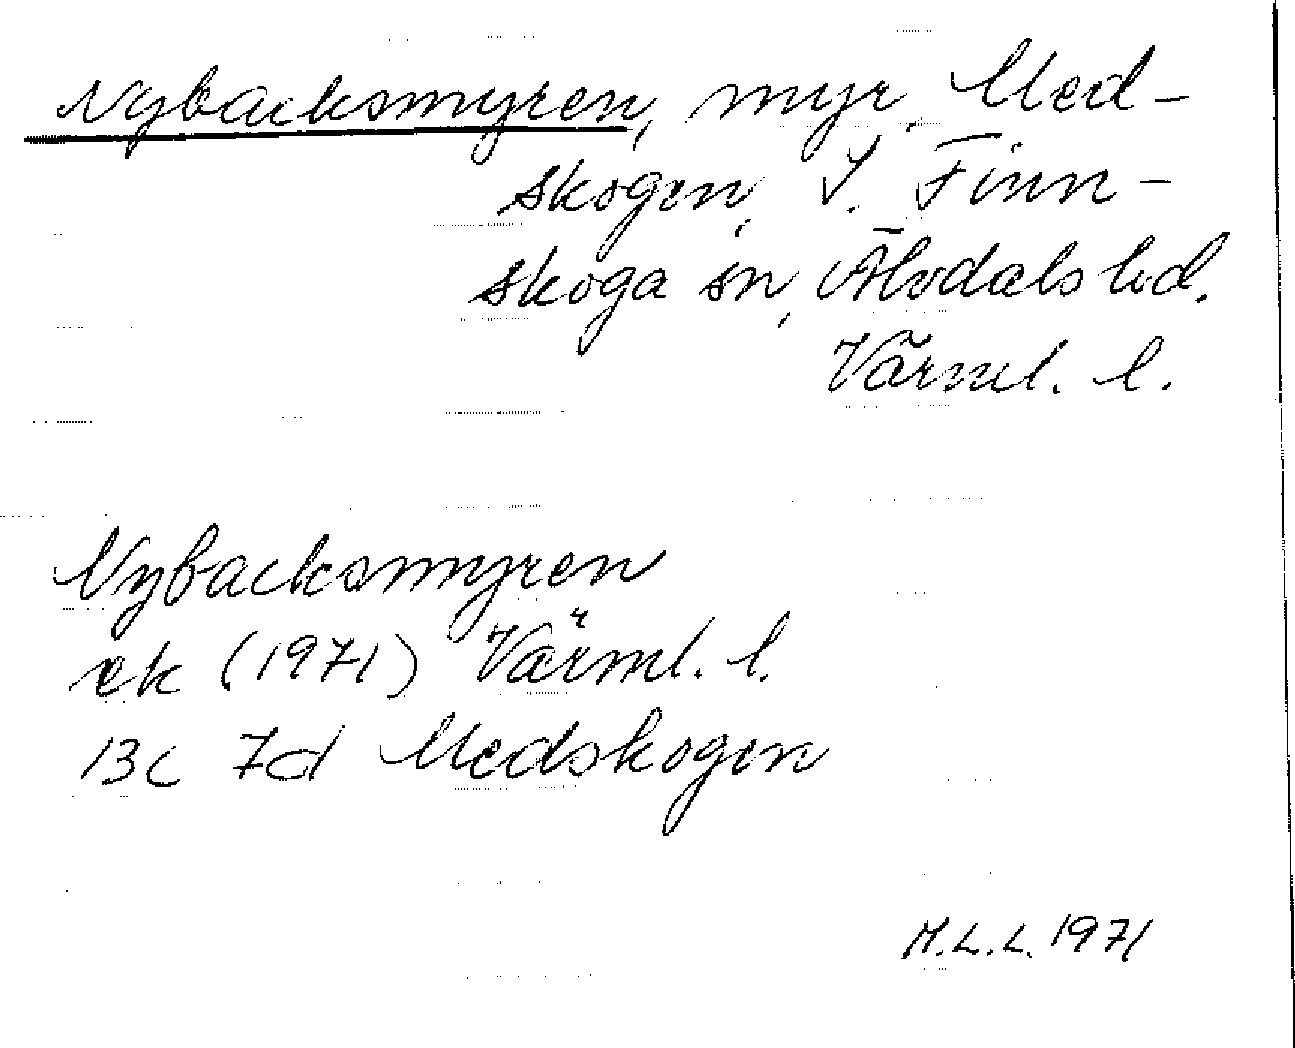 Nybacksmyren, myr, Med-
skogen, S. Finn-
skoga sn, Älvdals hd.
Värml. l.
Nybacksmyren
ek (1971) Värml. l.
13c 7d Medskogen
M.L.L. 1971